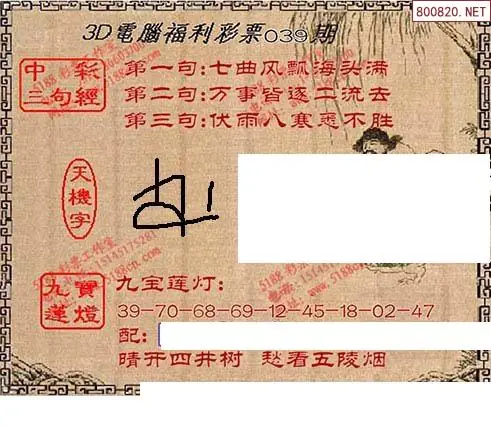 800820.NET
3D電腦福利彩票039期
中彩三句經
第一句:七曲风飘海头满
第二句:万事皆逐二流去
第三句:伏雨八寒悉不胜
天機字
九寶蓮燈
九宝莲灯:
39-70-68-69-12-45-18-02-47
配:
晴开四井树 愁看五陵烟